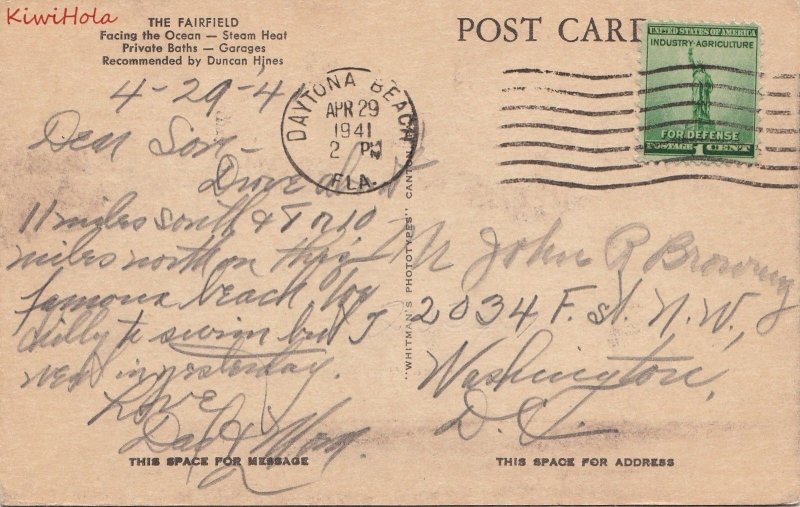 KiwiHola
THE FAIRFIELD
Facing the Ocean — Steam Heat
Private Baths — Garages
Recommended by Duncan Hines
POST CARD
UNITED STATES OF AMERICA
INDUSTRY · AGRICULTURE
FOR DEFENSE
POSTAGE 1 CENT
DAYTONA BEACH
APR 29
1941
2 PM
FLA.
4-29-41
Dear Son-
Drove about
11 miles south & 8 or 10
miles north on this
famous beach. Too
chilly to swim but I
went in yesterday.
Love
Dad & Mom.
Mr John R Browning
2034 F. St. N.W.,
Washington,
D.C.
"WHITMAN'S PHOTOTYPES" CANTON,
THIS SPACE FOR MESSAGE
THIS SPACE FOR ADDRESS